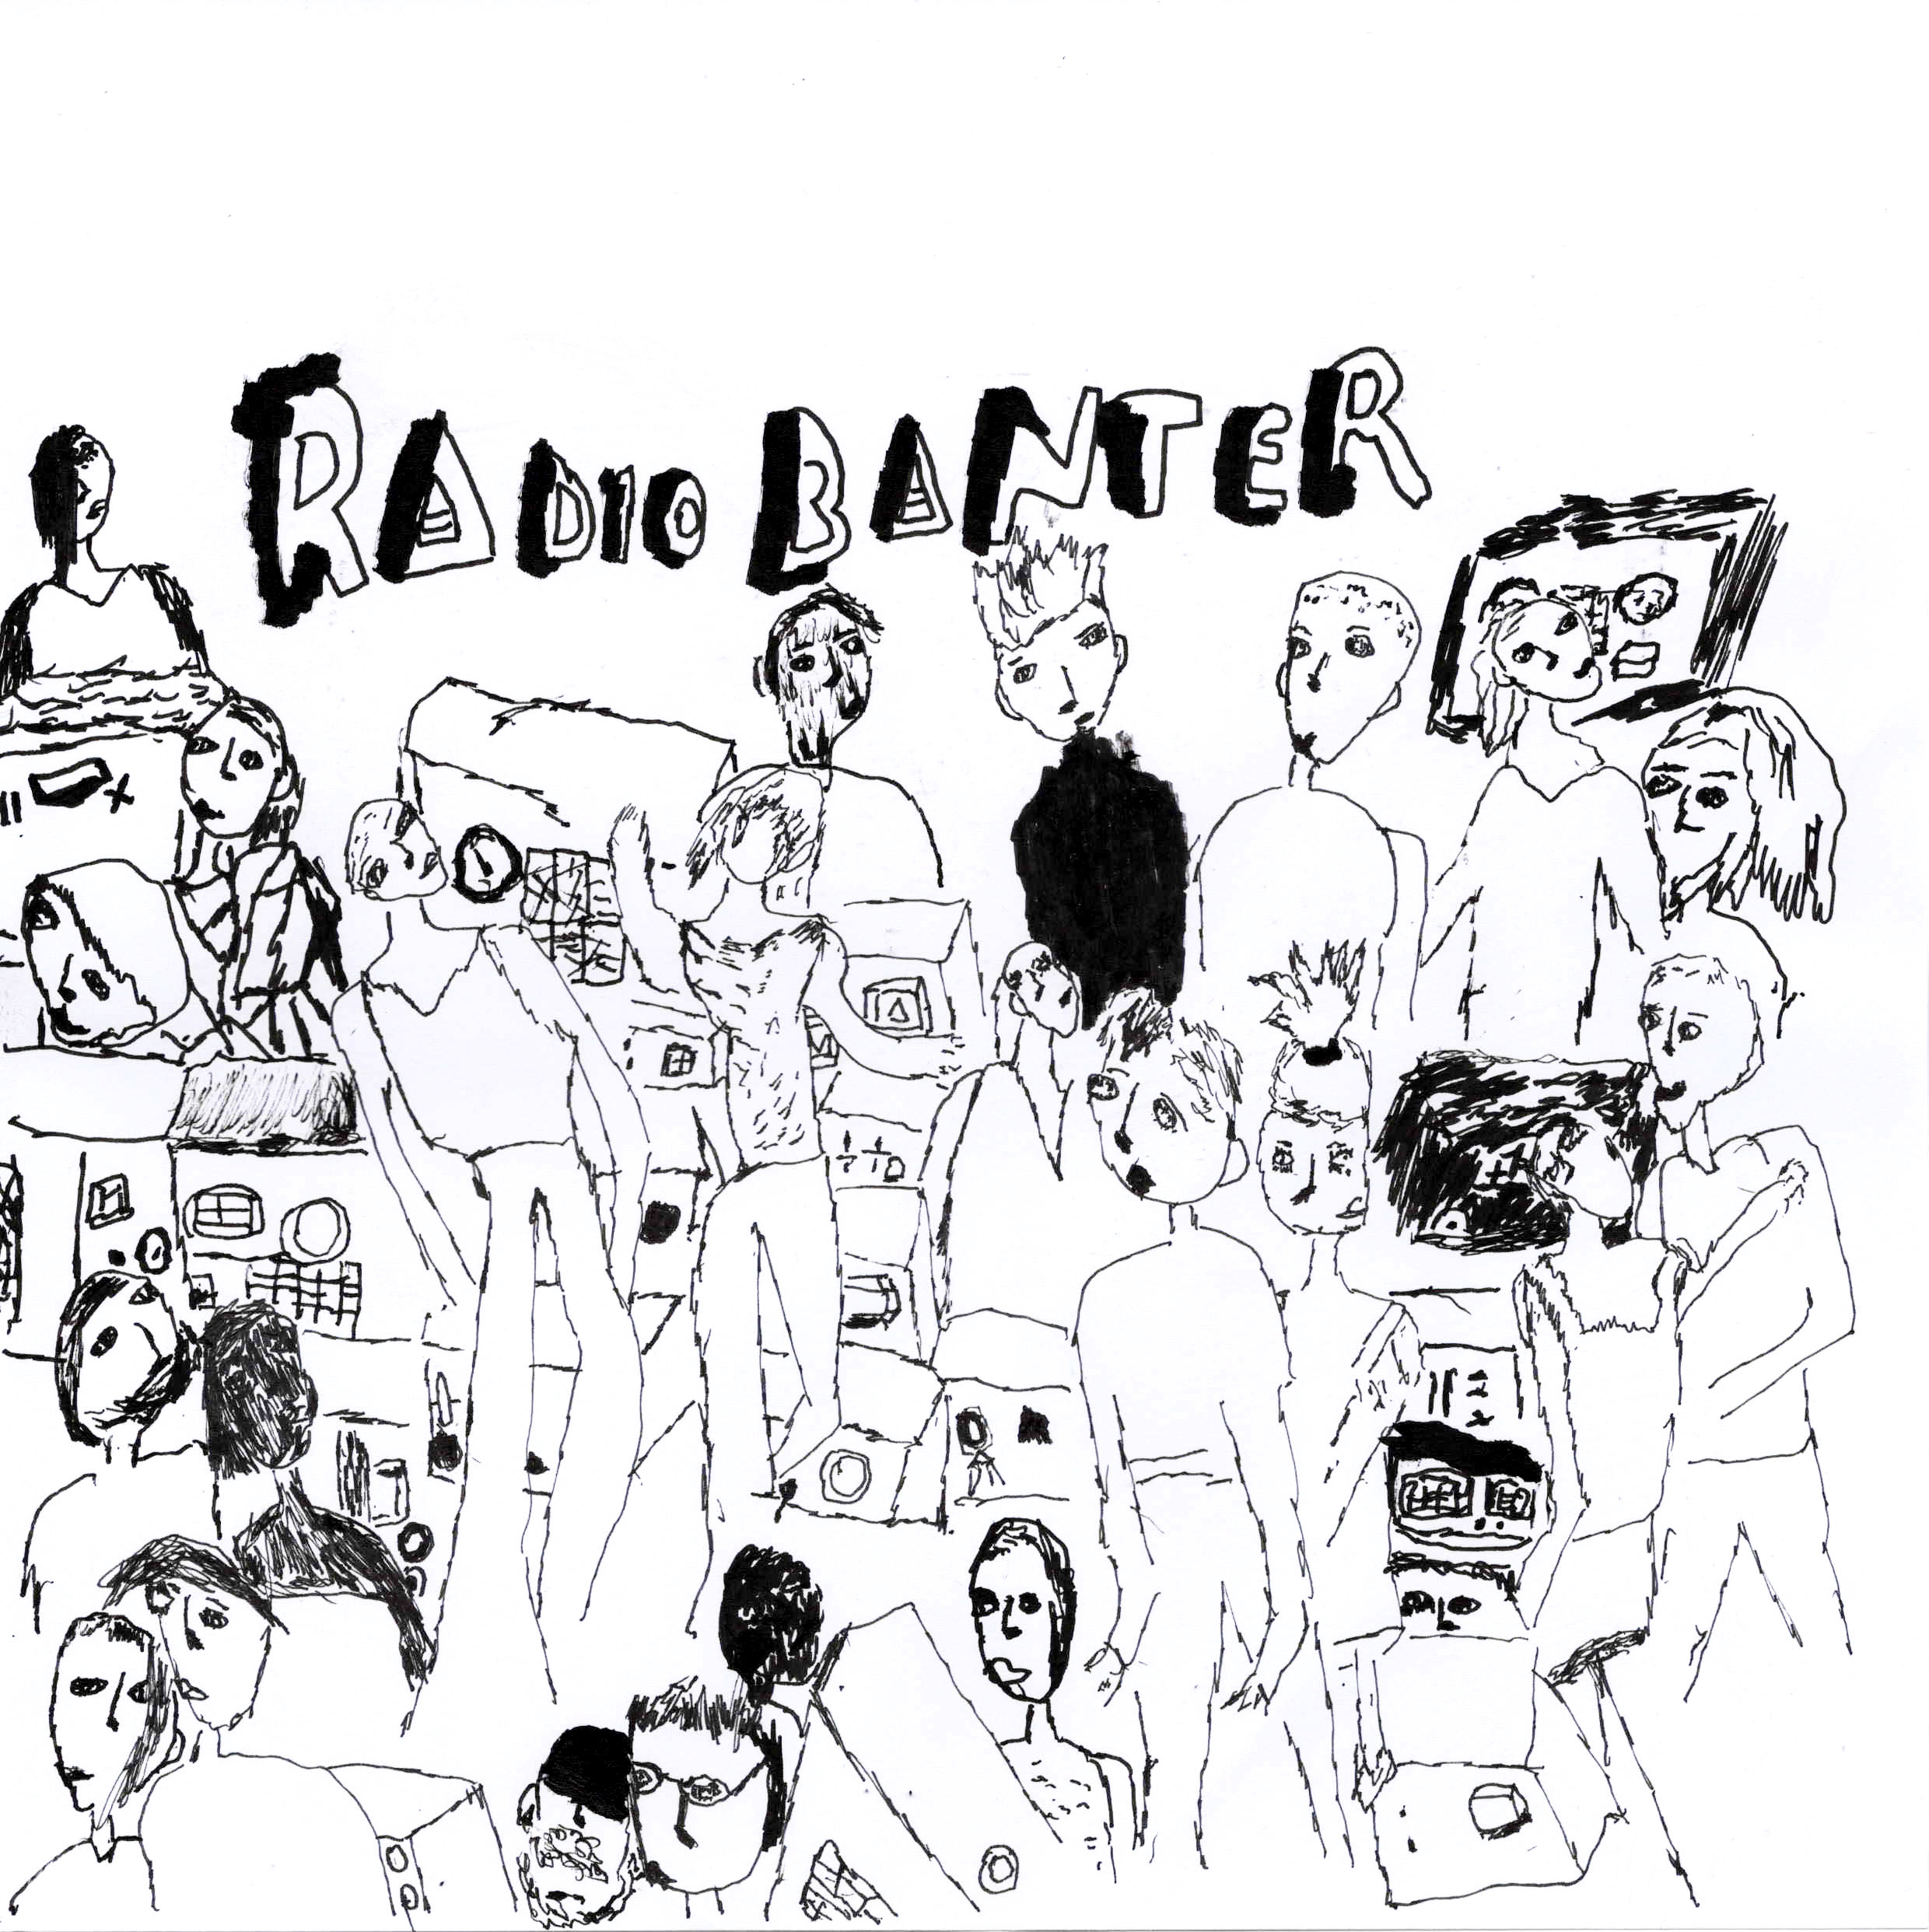 RADIO BANTER